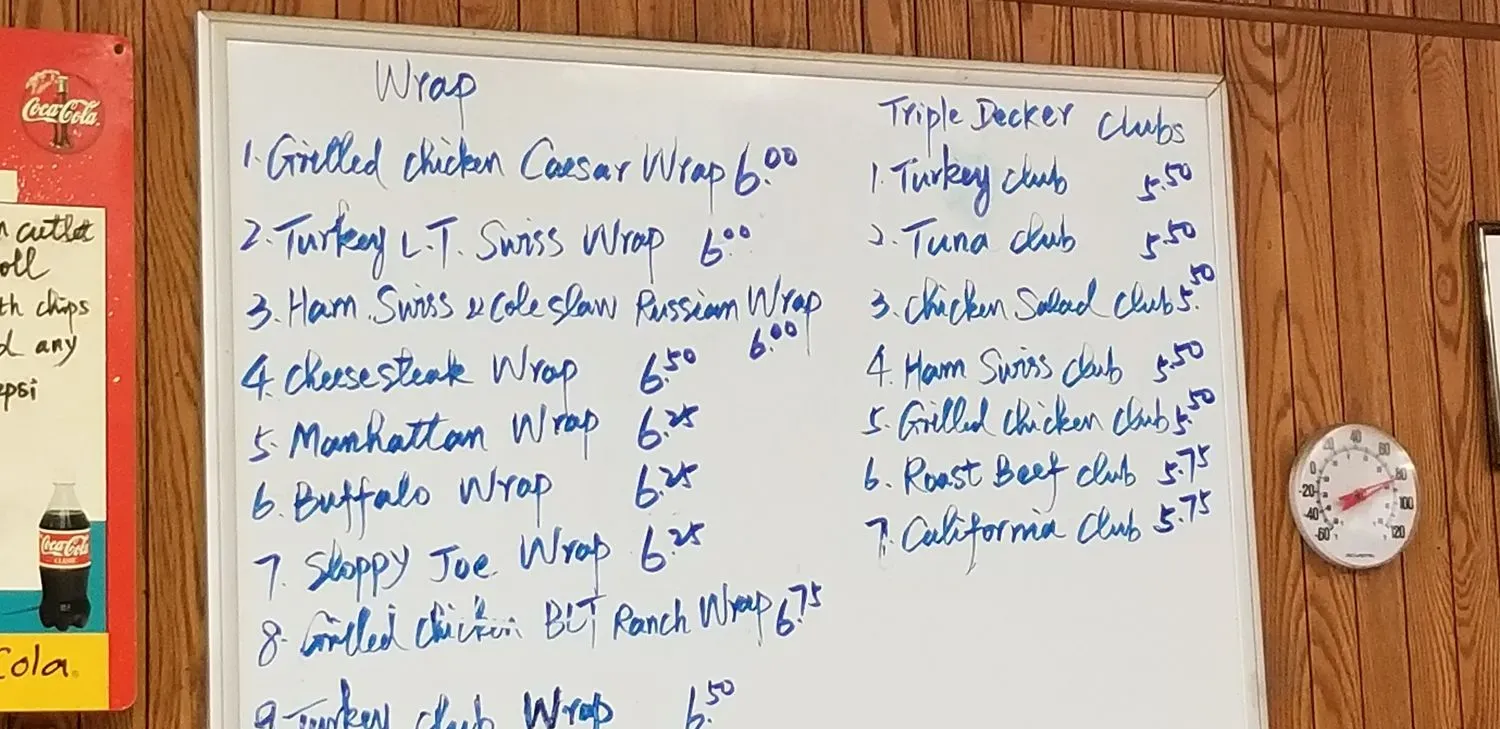 Coca-Cola
n cutlet
oll
th chips
d any
epsi
Coca-Cola
CLASSIC
Cola
Wrap
1. Grilled chicken Caesar Wrap 6.00
2. Turkey L.T. Swiss Wrap 6.00
3. Ham. Swiss & Coleslaw Russian Wrap
6.00
4. Cheesesteak Wrap 6.50
5. Manhattan Wrap 6.25
6. Buffalo Wrap 6.25
7. Sloppy Joe Wrap 6.25
8. Grilled chicken BLT Ranch Wrap 6.75
9. Turkey club Wrap 6.50
Triple Decker Clubs
1. Turkey club 5.50
2. Tuna club 5.50
3. Chicken Salad Club 5.50
4. Ham Swiss club 5.50
5. Grilled chicken club 5.50
6. Roast Beef club 5.75
7. California Club 5.75
-60 -40 -20 0 20 40 60 80 100 120